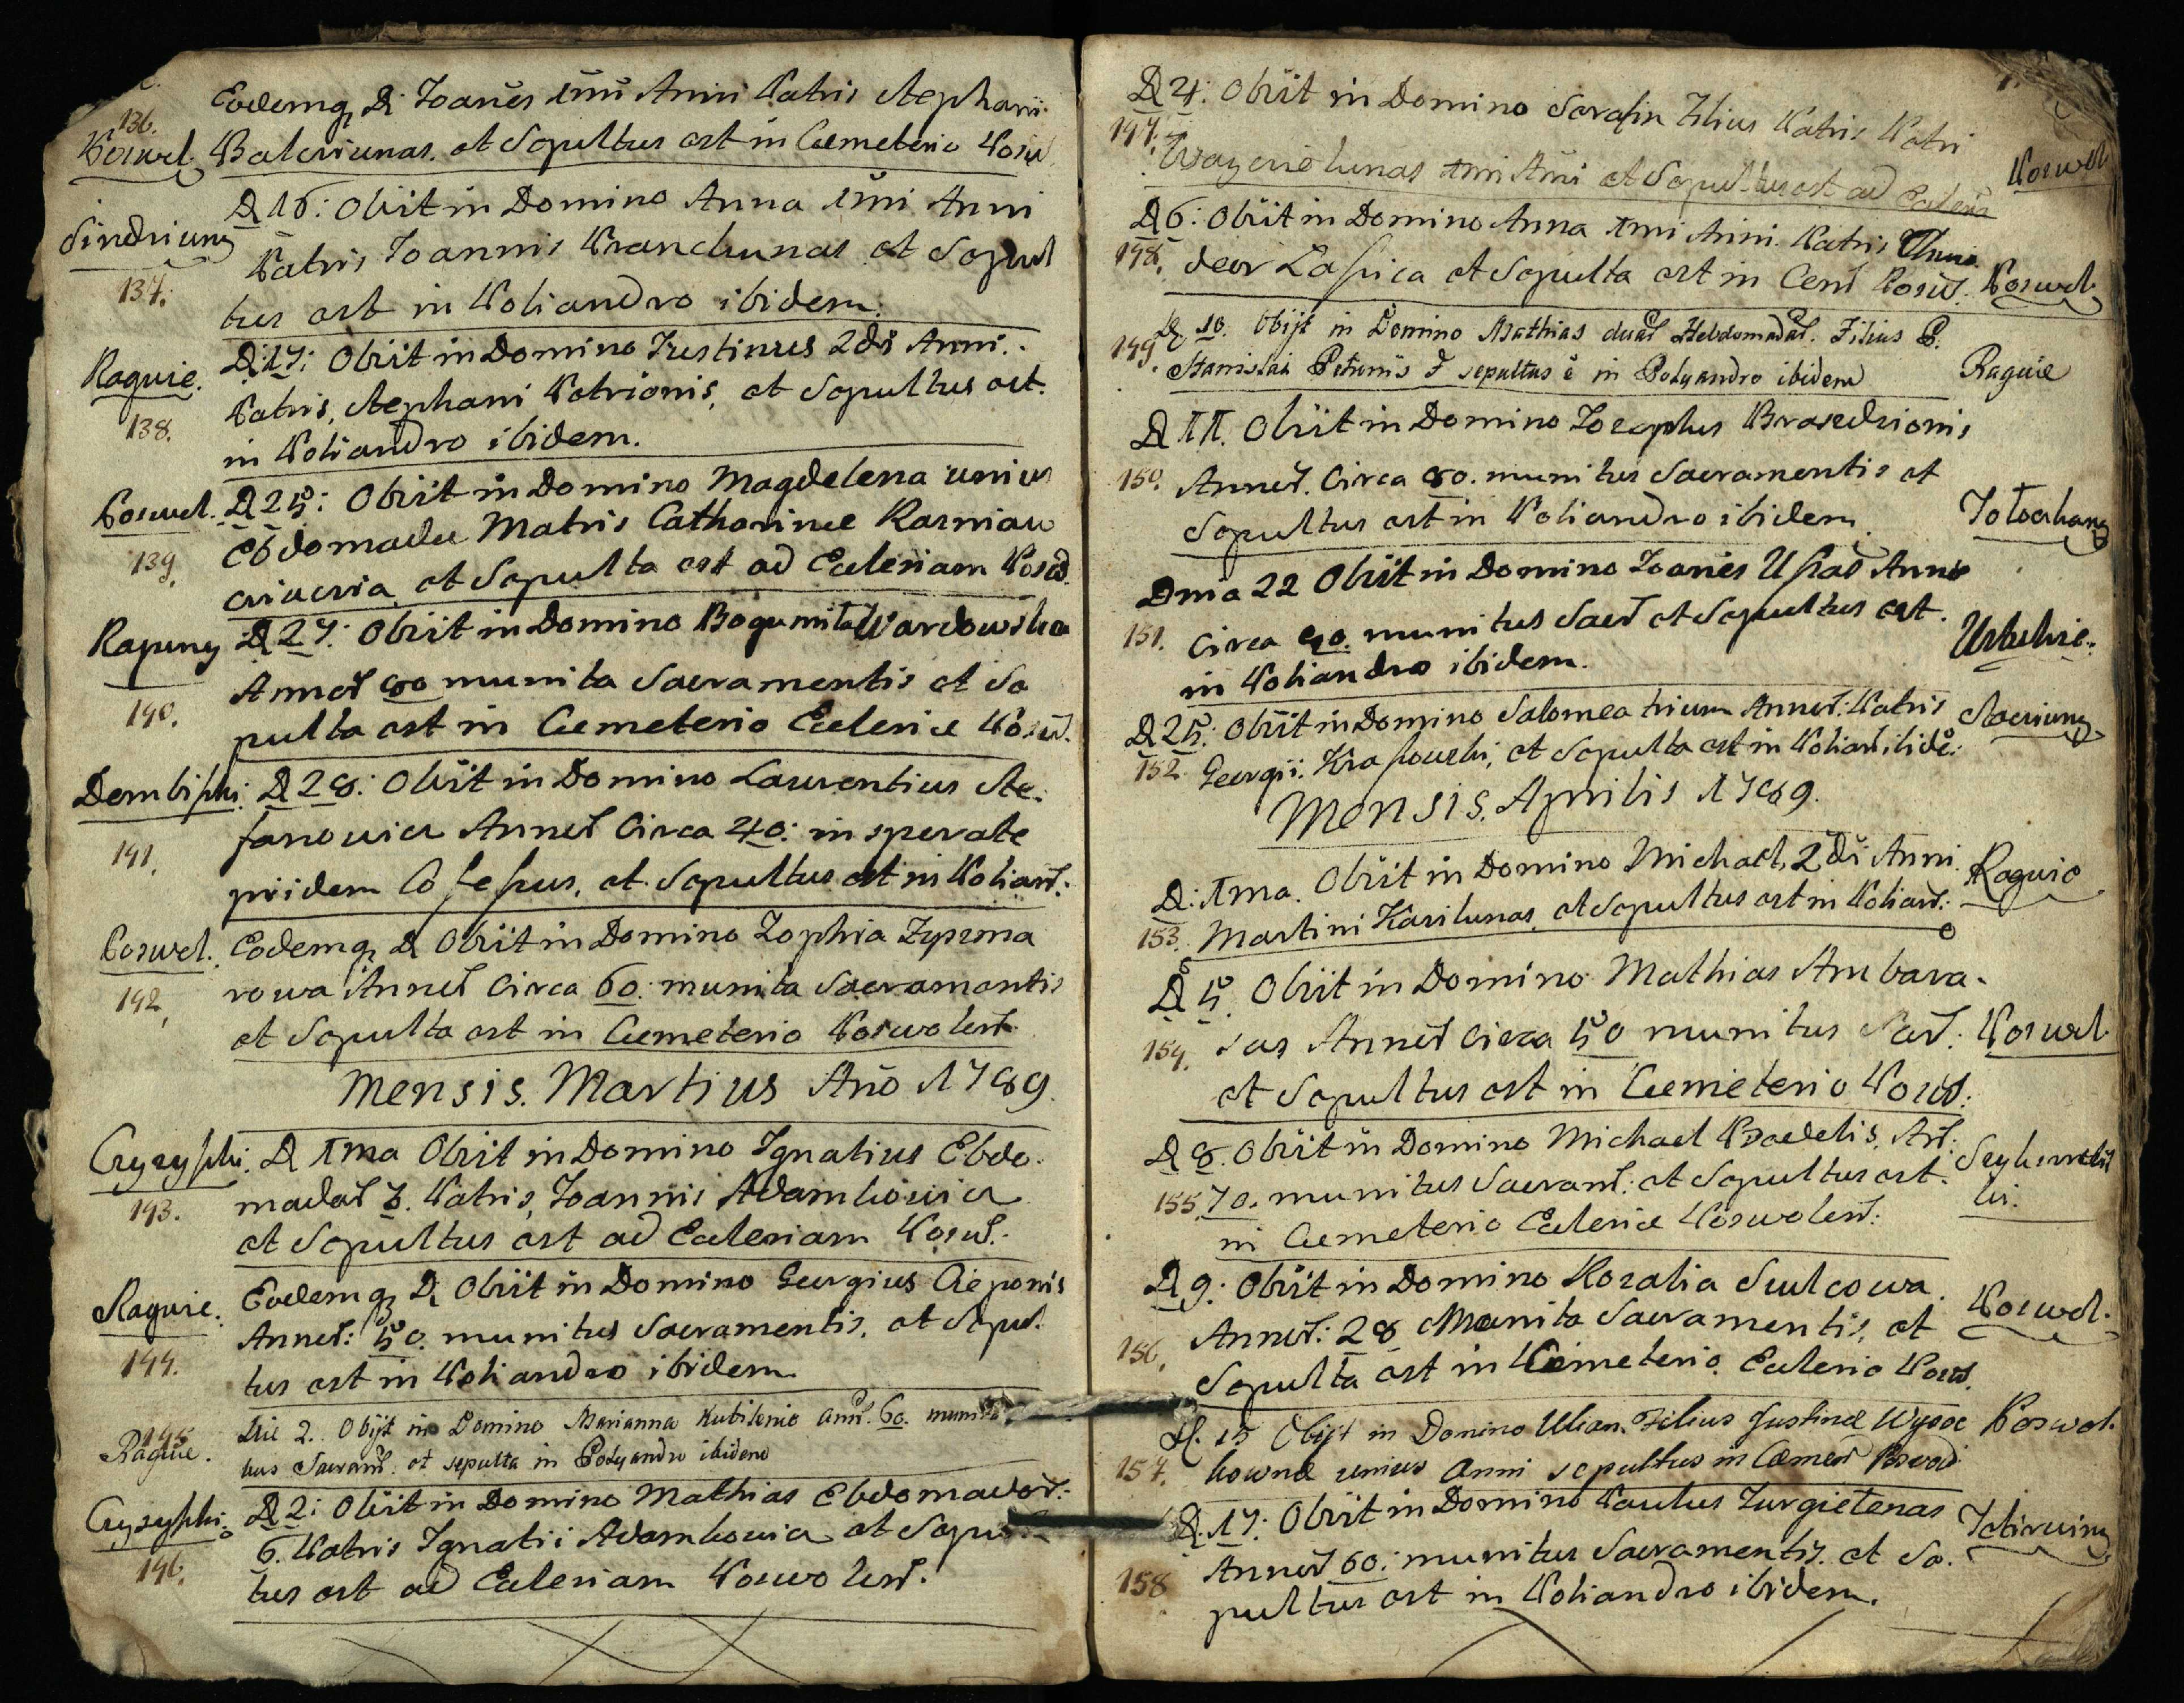 136.
Poswol.
Eodemq D. Joanes 1mi Anni Patris Stephani
Baleriunas. et Sepultus est in Cemeterio Posw.
Sindriuny
137.
D 16: Obiit in Domino Anna 1mi Anni
Patris Joannis Pranckunas et Sepul
tus est in Poliandro ibidem.
Raguie.
138.
D. 17: Obiit in Domino Justinus 2di Anni.
Patris, Stephani Petrionis, et Sepultus est.
in Poliandro ibidem.
Poswol.
139.
D 25: Obiit in Domino Magdelena unius
Ebdomadae Matris Catharinae
et Sepulta est ad Ecclesiam Posw.
Rapuny
140.
D 27: Obiit in Domino Bogumila Wardowska
Annor 80 munita Sacramentis et Se
pulta est in Cemeterio Ecclesiae Posw.
Dembiski
141.
D 28: Obiit in Domino Laurentius Ste.
fanowicz Annor Circa 40: insperate
pridem Cofessus, et Sepultus est in Poliand:
Poswol.
142.
Eodemq D Obiit in Domino Zophia Zyzma
rowa Annor Circa 60. munita Sacramentis
et Sepulta est in Cemeterio Poswolen.
Mensis. Martius Año 1789.
Czyzyski.
143.
D 1ma Obiit in Domino Ignatius Ebdo.
madar 3. Patris, Joannis Adamkowicz
et Sepultus est ad Ecclesiam Posw.
Raguie.
144.
Eodemq D. Obiit in Domino Georgius Cieponis
Annor: 50. munitus Sacramentis, et Sepul.
tus est in Poliandro ibidem.
145
Raguie.
Die 2. Obijt in Domino Marianna Kubilenie ann. 60. munita
bus Sacram. et sepulta in Polyandro ibidem
Czyzyski.
146.
D 2: Obiit in Domino Mathias Ebdomador:
6. Patris Ignatii Adamkowicz et Sepul
tus est ad Ecclesiam Poswolen.
D 4: Obiit in Domino Serafin Filius Patris Petri
147.
1mi Ani et Sepultus est ad Ecclesia
Poswol
D 6: Obiit in Domino Anna 1mi Anni. Patris
148.
Lasica et Sepulta est in Cem Posw.
Poswol.
D 10. Obijt in Domino Mathias duar Hebdomadar. Filius P.
149.
Stanislai Petunis & sepultus e in Polyandro ibidem
Raguie
D 11. Obiit in Domino Josephus
150.
Annor. Circa 80. munitus Sacramentis et
Sepultus est in Poliandro ibidem.
Dma 22 Obiit in Domino Joanes Annor
151.
Circa 90. munitus Sacr et Sepultus est.
in Poliandro ibidem.
D 25: Obiit in Domino Salomea trium Annor: Patris
152.
Georgii. Krassowski, et Sepulta est in Poliand ibide:
Mensis. Aprilis 1789.
D: 1ma. Obiit in Domino Michael, 2di Anni
153.
Martini Karilunas, et Sepultus est in Poliand:
Raguie
D 5. Obiit in Domino Mathias Ambara.
154.
sas Annor Circa 50 munitus Sacr:
Poswol
et Sepultus est in Cemeterio Posw:
D 8. Obiit in Domino Michael
155.
70. munitus Sacram: et Sepultus est.
in Cemeterio Ecclesiae Poswolen:
D 9: Obiit in Domino Rozalia Szulcowa.
156.
Annor: 28 Munita Sacramentis, et
Poswol.
Sepulta est in Cemeterio Ecclesie Posw.
D. 15 Obijt in Domino Filius Justinae Wysoc
Poswol.
157.
kowna unius Anni sepultus in Cemer Poswol
D. 17: Obiit in Domino Paulus Jurgielenas
158
Annor 60: munitus Sacramentis. et Se.
pultus est in Poliandro ibidem.